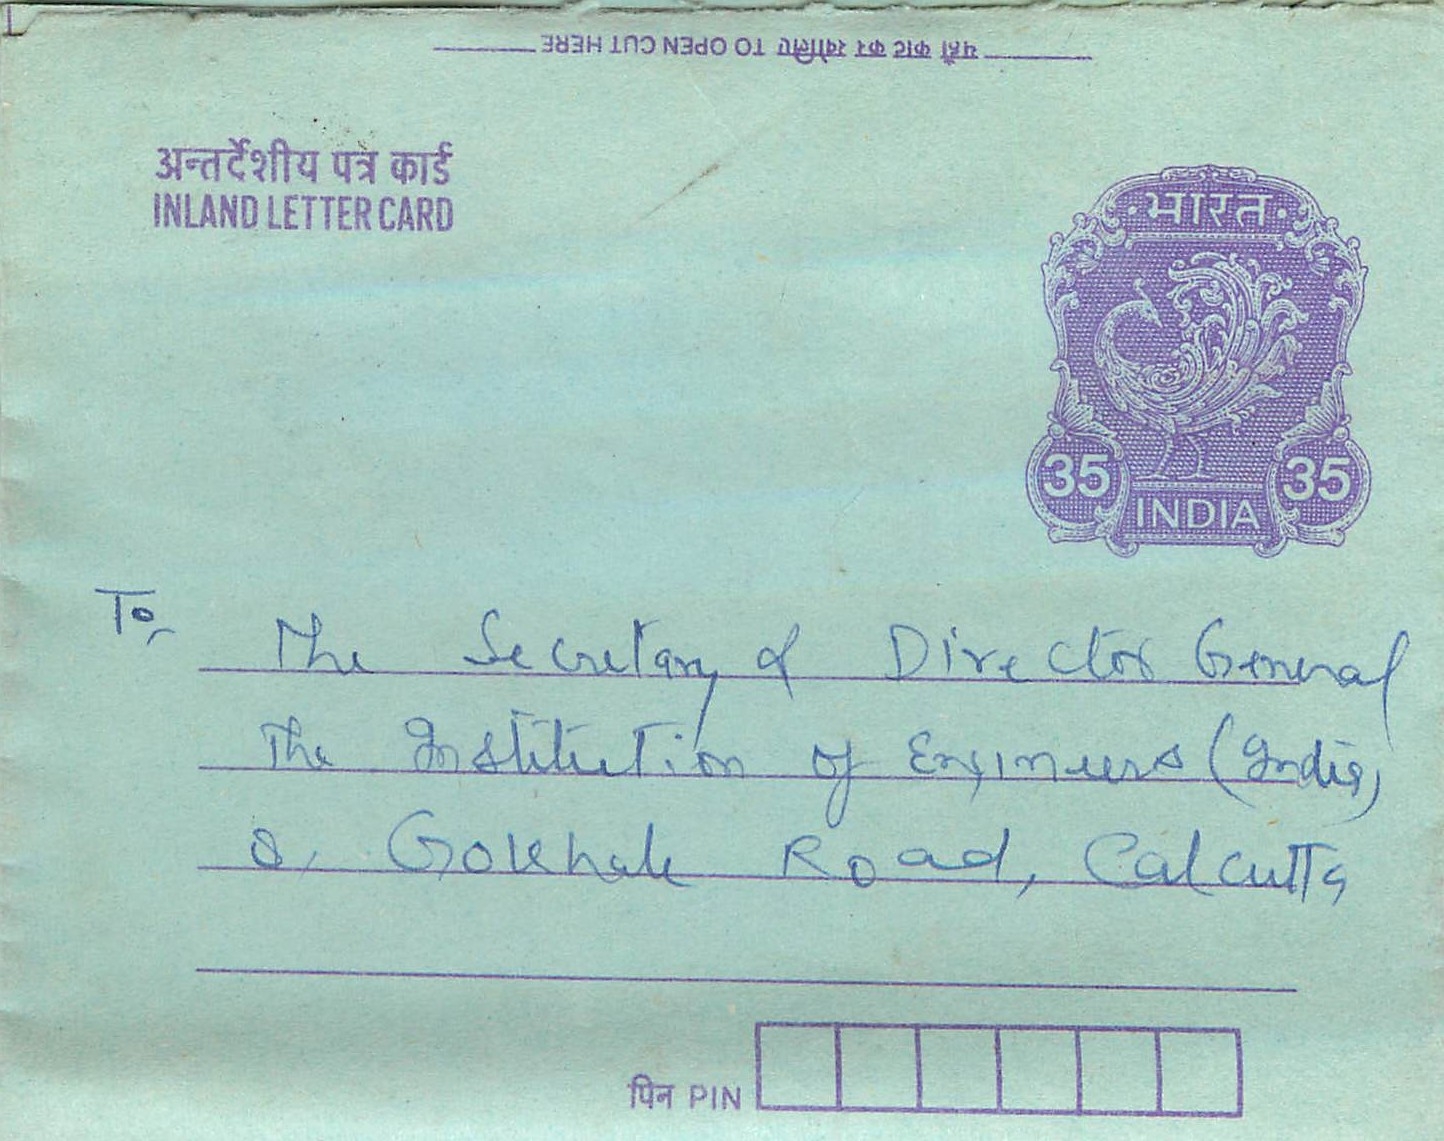 यहाँ काट कर खोलिए TO OPEN CUT HERE
अन्तर्देशीय पत्र कार्ड
INLAND LETTER CARD
भारत
35 35
INDIA
To,
The Secretary & Director General
The Institution of Engineers (India)
8, Gokhale Road, Calcutta
पिन PIN